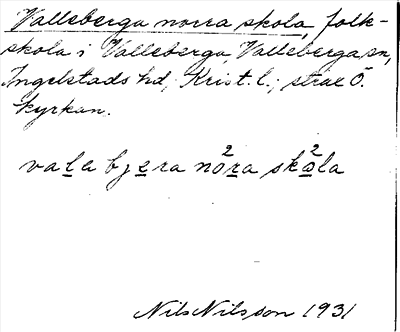 Valleberga norra skola, folk-
skola i Valleberga, Valleberga sn,
Ingelstads hd, Krist. l.; strax Ö.
kyrkan.
valabjera nò²ra skò²la
Nils Nilsson 1931